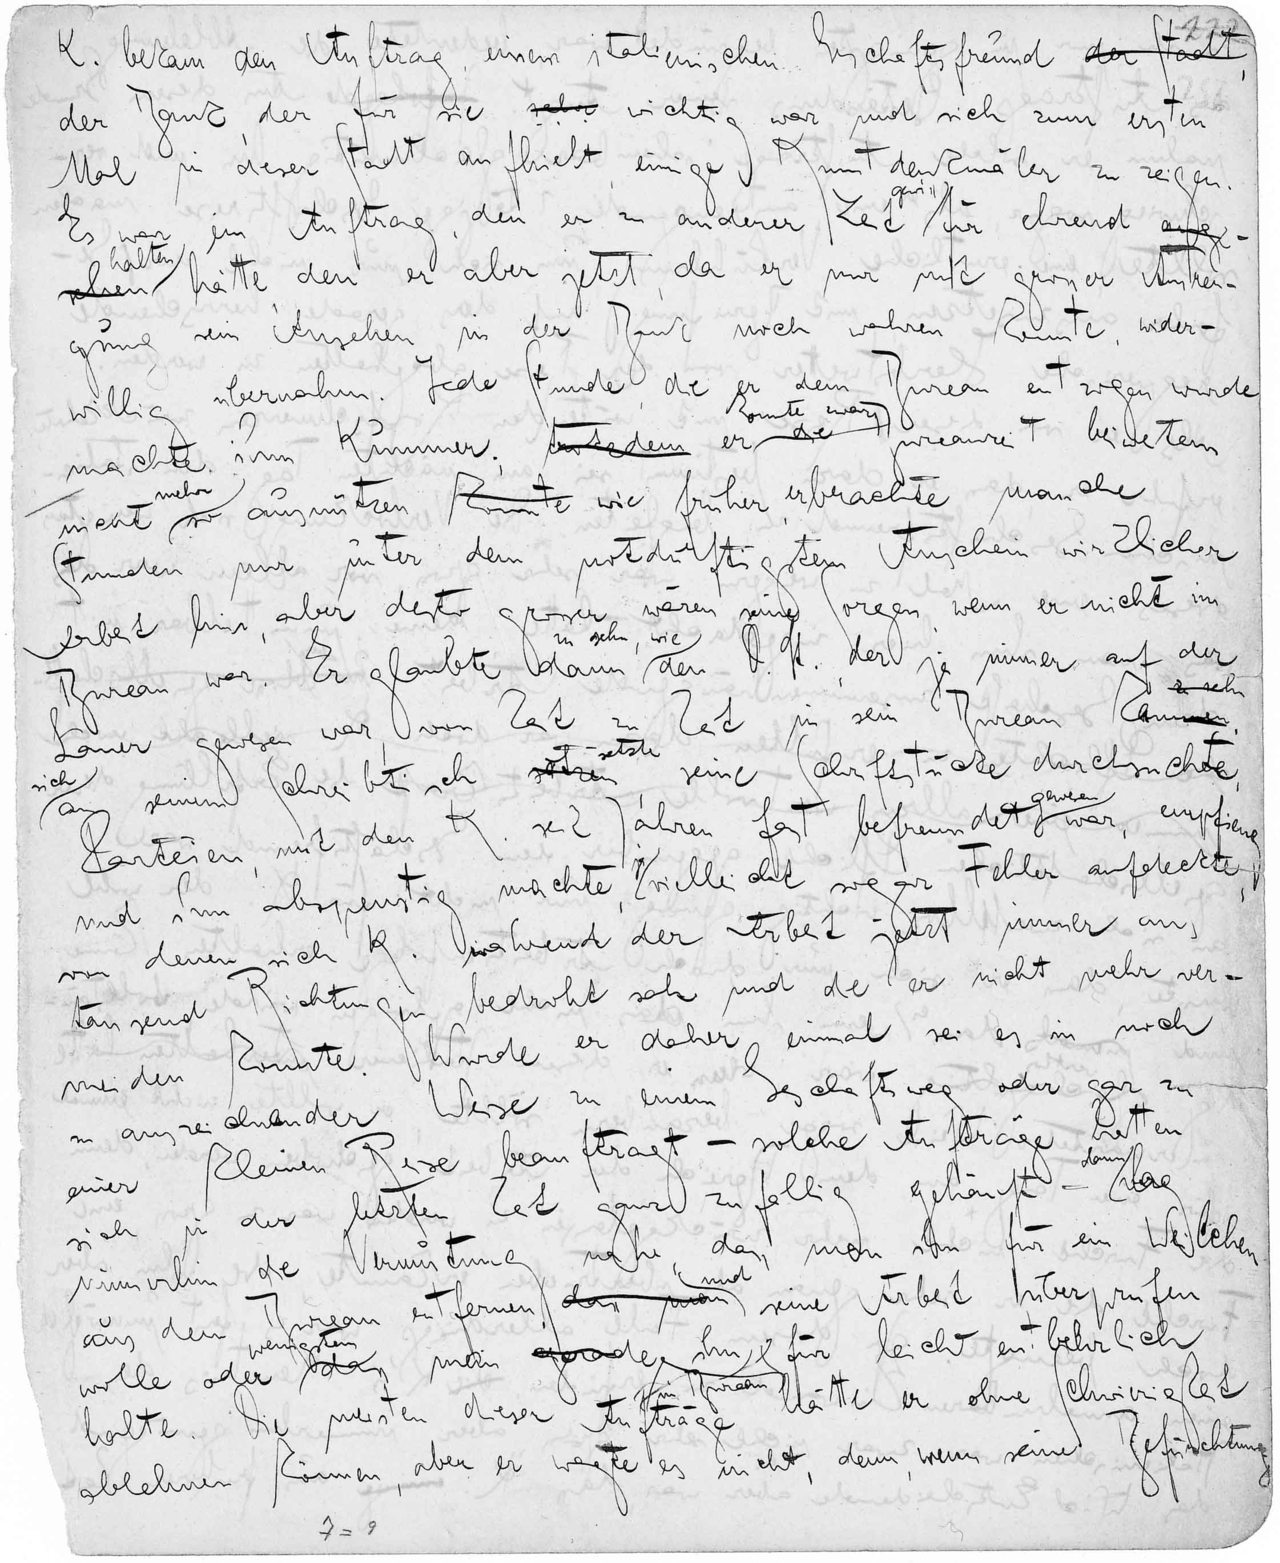 K. bekam den Auftrag, einem italienischen Geschäftsfreund der Stadt,
der Bank, der für sie sehr wichtig war und sich zum ersten
Mal in dieser Stadt aufhielt, einige Kunstdenkmäler zu zeigen.
Es war ein Auftrag, den er zu anderer Zeit gewiß für ehrend ange-
sehen halten hätte, den er aber jetzt, da er nur mit grosser Anstren-
gung sein Ansehen in der Bank noch wahren konnte, wider-
willig übernahm. Jede Stunde, die er dem Bureau entzogen wurde
machte ihm Kummer; trotzdem er die konnte zwar Bureauzeit beiweitem
nicht so mehr ausnützen konnte wie früher, er brachte manche
Stunden nur unter dem notdürftigsten Anschein wirklicher
Arbeit hin, aber desto grösser waren seine Sorgen, wenn er nicht im
Bureau war. Er glaubte dann zu sehn, wie den D. St., der ja immer auf der
Lauer gewesen war, von Zeit zu Zeit in sein Bureau kommen zu sehn,
sich an seinem Schreibtisch setzen setzte, seine Schriftstücke durchsuchte,
Parteien, mit den K. seit Jahren fast befreundet gewesen war, empfieng
und ihm abspenstig machte, ja vielleicht sogar Fehler aufdeckte,
von denen sich K. während der Arbeit jetzt immer aus
tausend Richtungen bedroht sah und die er nicht mehr ver-
meiden konnte. Wurde er daher einmal sei es in noch
so auszeichnender Weise zu einem Geschäftsweg oder gar zu
einer kleinen Reise beauftragt – solche Aufträge hatten
sich in der letzten Zeit ganz zufällig gehäuft – dann lag
immerhin die Vermutung nahe, dass man ihn für ein Weilchen
aus dem Bureau entfernen dass man und seine Arbeit überprüfen
wolle oder wenigstens dass man gerade ihn im Bureau für leicht entbehrlich
halte. Die meisten dieser Aufträge hätte er ohne Schwierigkeit
ablehnen können, aber er wagte es nicht, denn, wenn seine Befürchtung
7 = 9